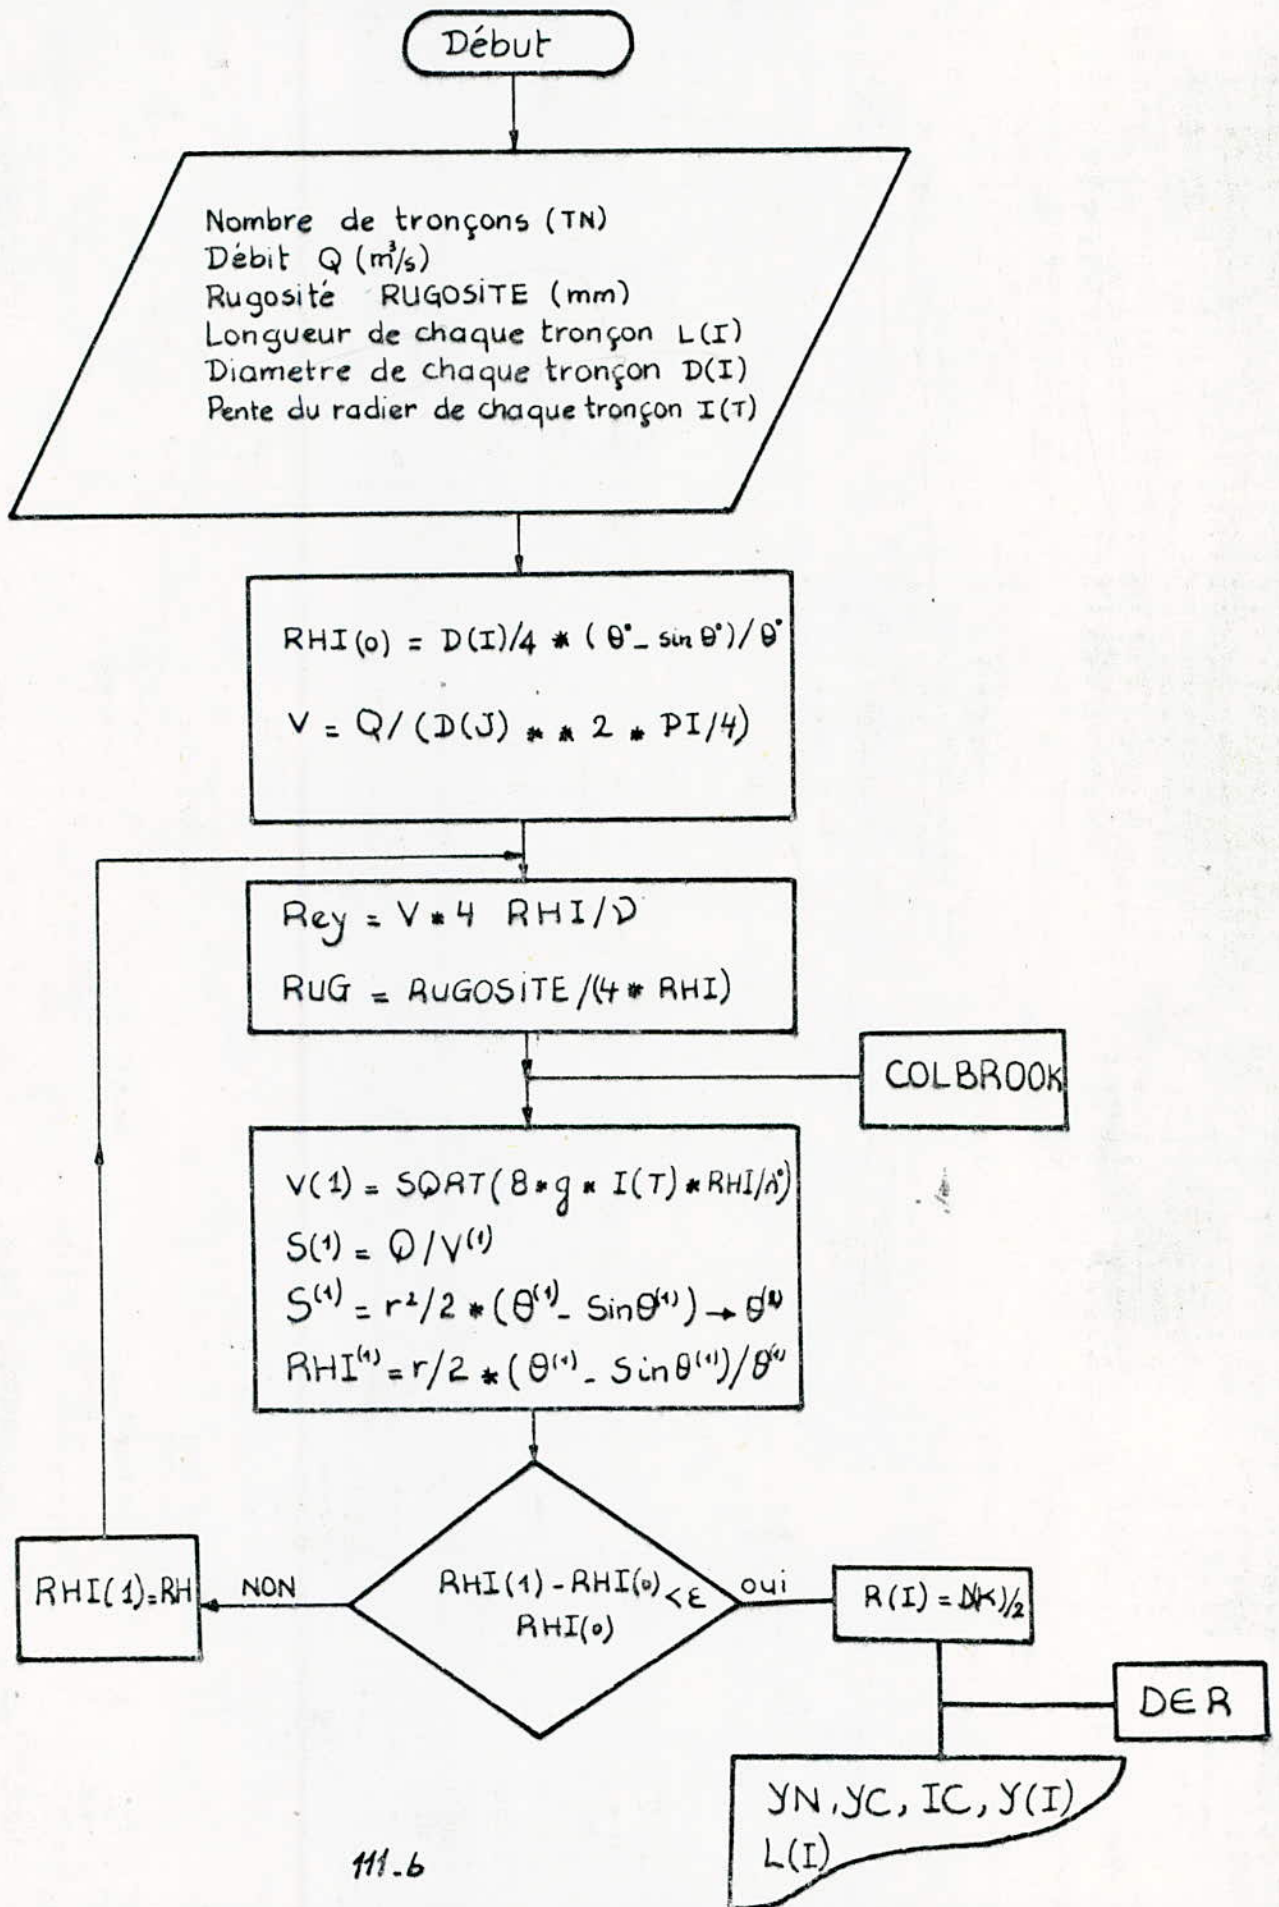 Début
Nombre de tronçons (TN)
Débit Q (m³/s)
Rugosité RUGOSITE (mm)
Longueur de chaque tronçon L(I)
Diametre de chaque tronçon D(I)
Pente du radier de chaque tronçon I(T)
RHI(0) = D(I)/4 * (θ° - sin θ°)/θ°
V = Q/(D(J) * * 2 * PI/4)
Rey = V * 4 RHI/ν
RUG = RUGOSITE/(4 * RHI)
COLBROOK
V(1) = SQRT(8 * g * I(T) * RHI/λ°)
S(1) = Q/V⁽¹⁾
S⁽¹⁾ = r²/2 * (θ⁽¹⁾ - Sinθ⁽¹⁾) → θ⁽¹⁾
RHI⁽¹⁾ = r/2 * (θ⁽¹⁾ - Sinθ⁽¹⁾)/θ⁽¹⁾
RHI(1)=RH
NON
RHI(1) - RHI(0) < ε
RHI(0)
oui
R(I) = D(K)/2
DER
YN, YC, IC, Y(I)
L(I)
111-b